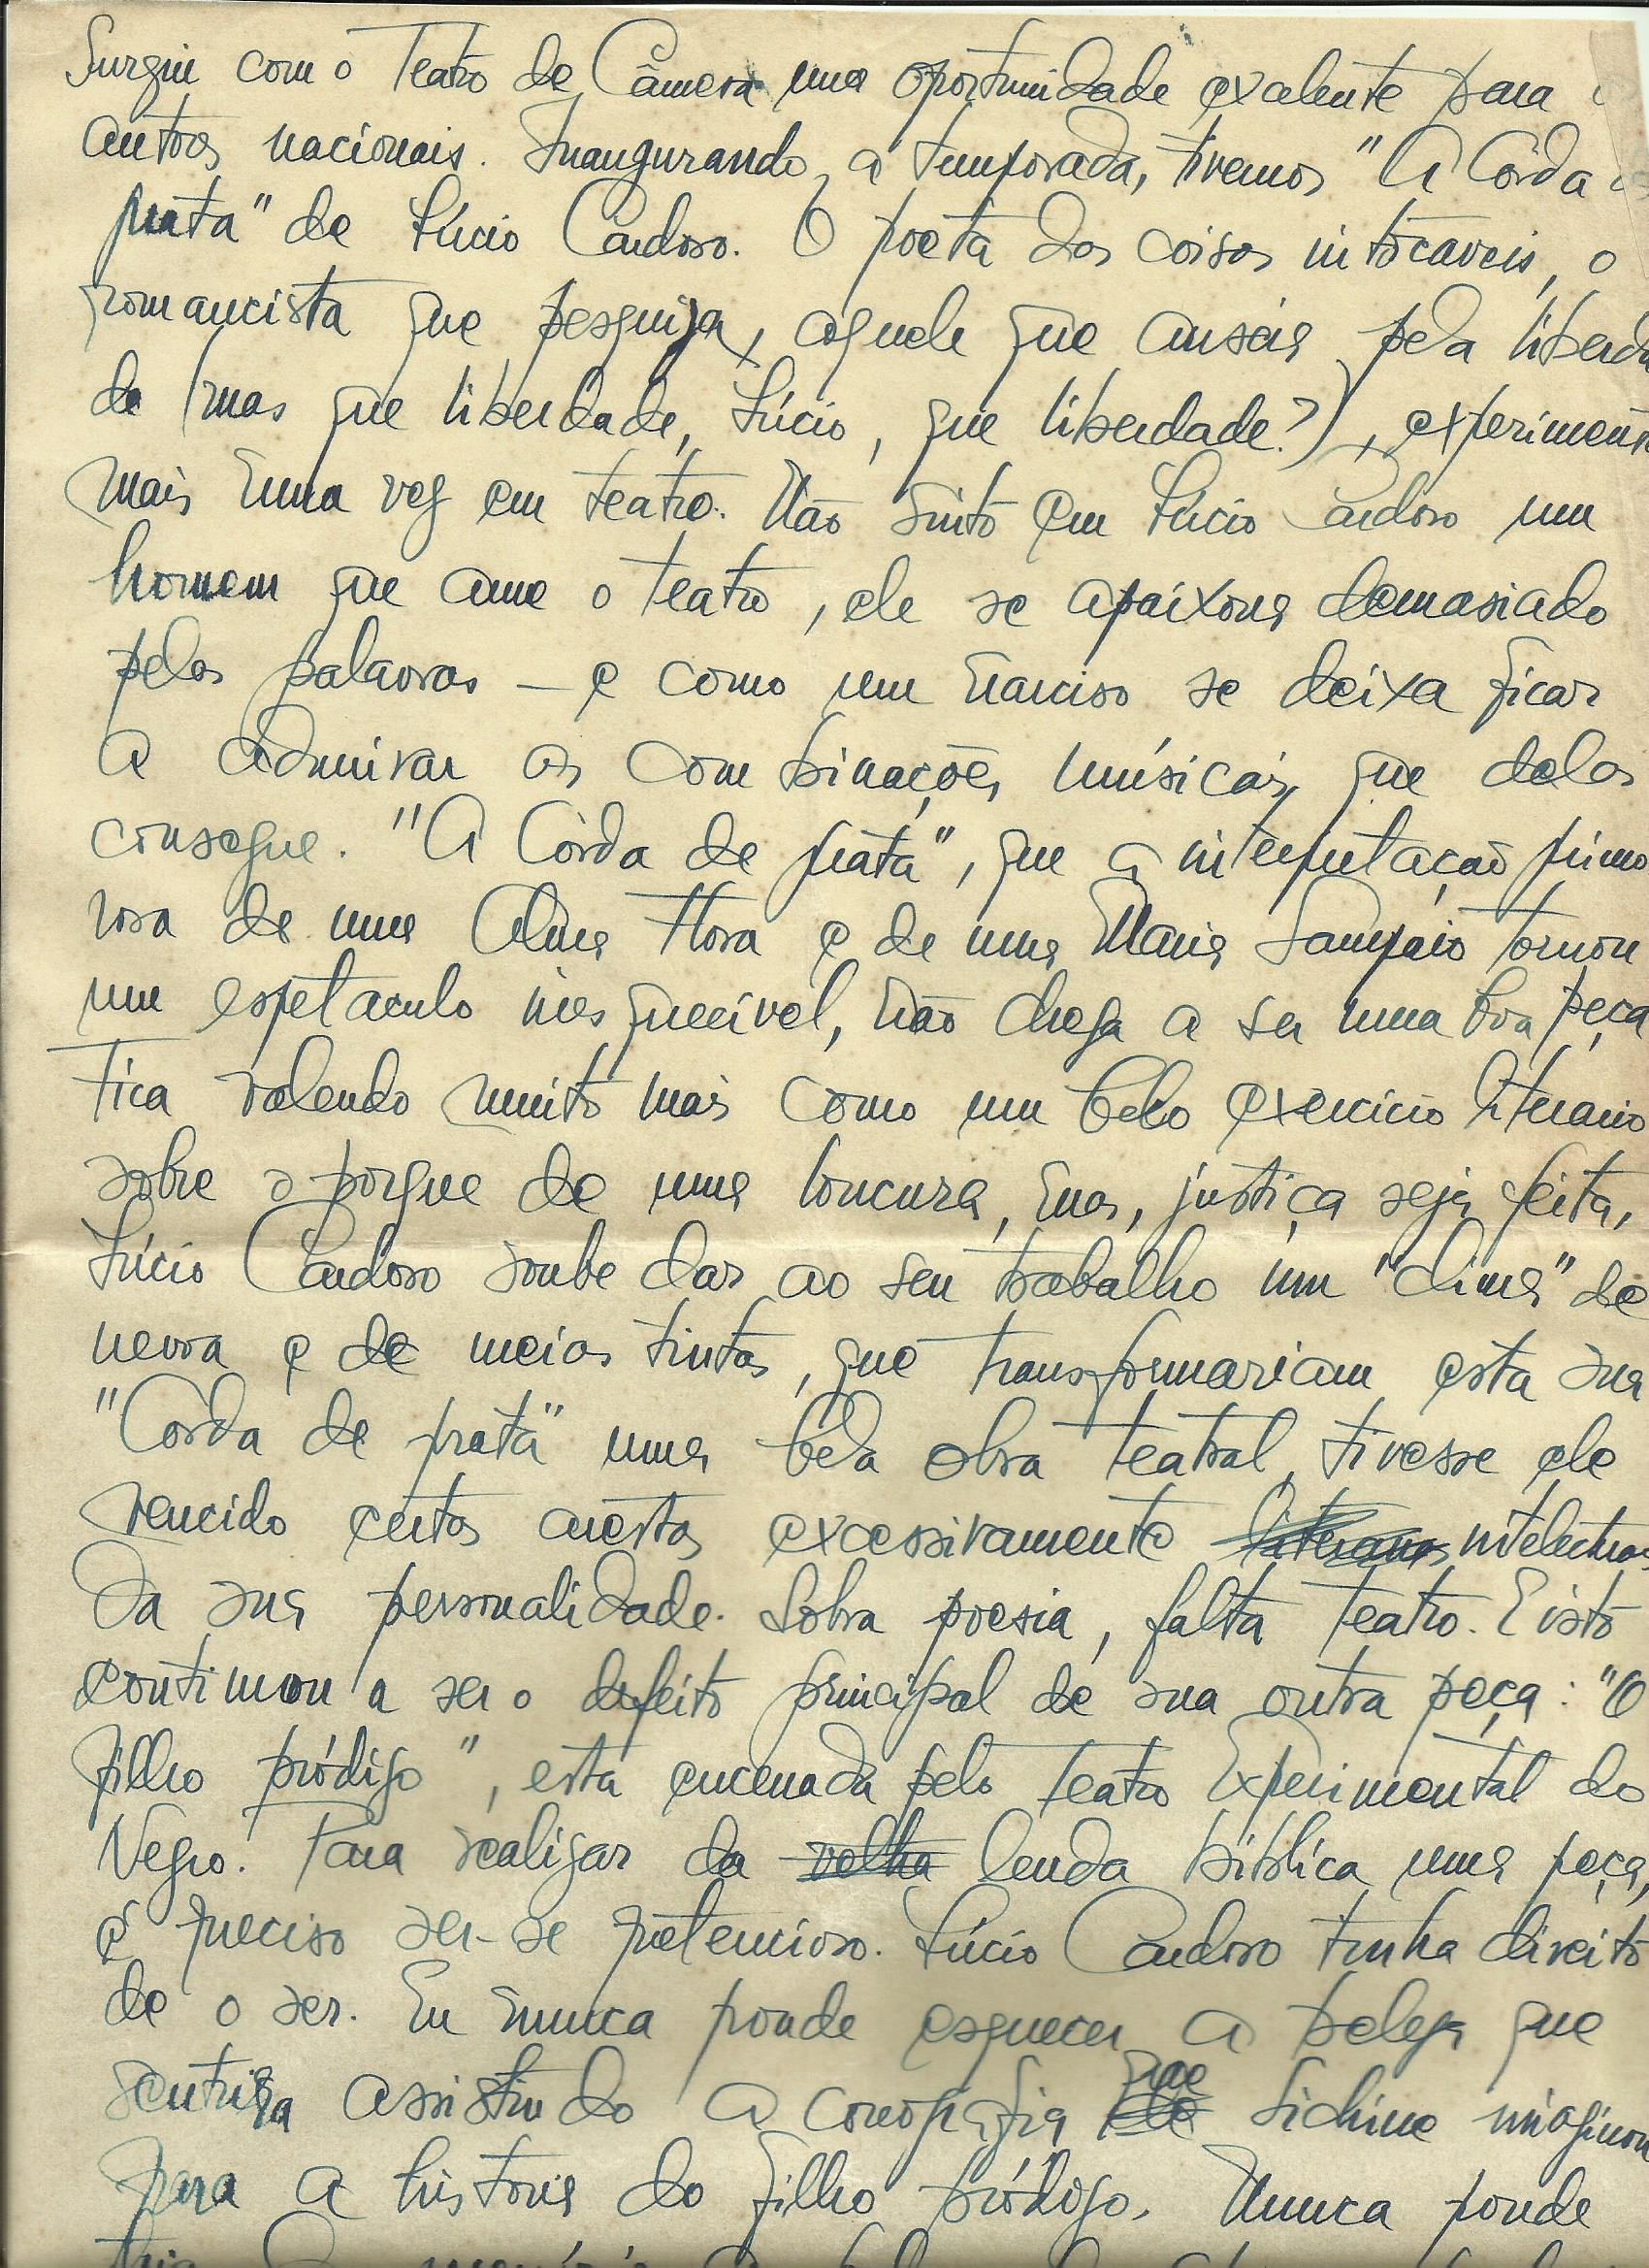 Surgiu com o Teatro de Câmera uma oportunidade exalente para
autores nacionais. Inaugurando a temporada, tivemos "A Córda
prata" de Lúcio Cardoso. O poeta das coisas intocaveis, o
romancista que pesquiza, aquele que anseia pela liberda
de (mas que liberdade, Lúcio, que liberdade?), experimenta
mais uma vez em teatro. Não sinto em Lúcio Cardoso um
homem que ame o teatro, ele se apaixona demasiado
pelas palavras — e como um narciso se deixa ficar
a admirar as combinações músicais que delas
consegue. "A Córda de prata", que a interpretação primo
rosa de uma Alma Flora e de uma Maria Sampaio tornou
um espetaculo inesquecível, não chega a ser uma boa peça
Fica valendo muito mais como um belo exercicio literario
sobre o porque de uma loucura, mas, justiça seja feita,
Lúcio Cardoso soube dar ao seu trabalho um "clima" de
nevoa e de meias tintas, que transformariam esta sua
"Córda de prata" uma bela obra teatral, tivesse ele
vencido certas arestas excessivamente literarias intelectuais
da sua personalidade. Sobra poesia, falta teatro. E isto
continuou a ser o defeito principal de sua outra peça: "O
filho pródigo", esta encenada pelo Teatro Experimental do
Negro. Para realizar da velha lenda bíblica uma peça,
é preciso ser-se pretencioso. Lúcio Cardoso tinha direito
de o ser. Eu nunca poude esquecer a beleza que
sentira assistindo a coreografia que Lichine imaginou
para a historia do filho pródigo. Nunca poude